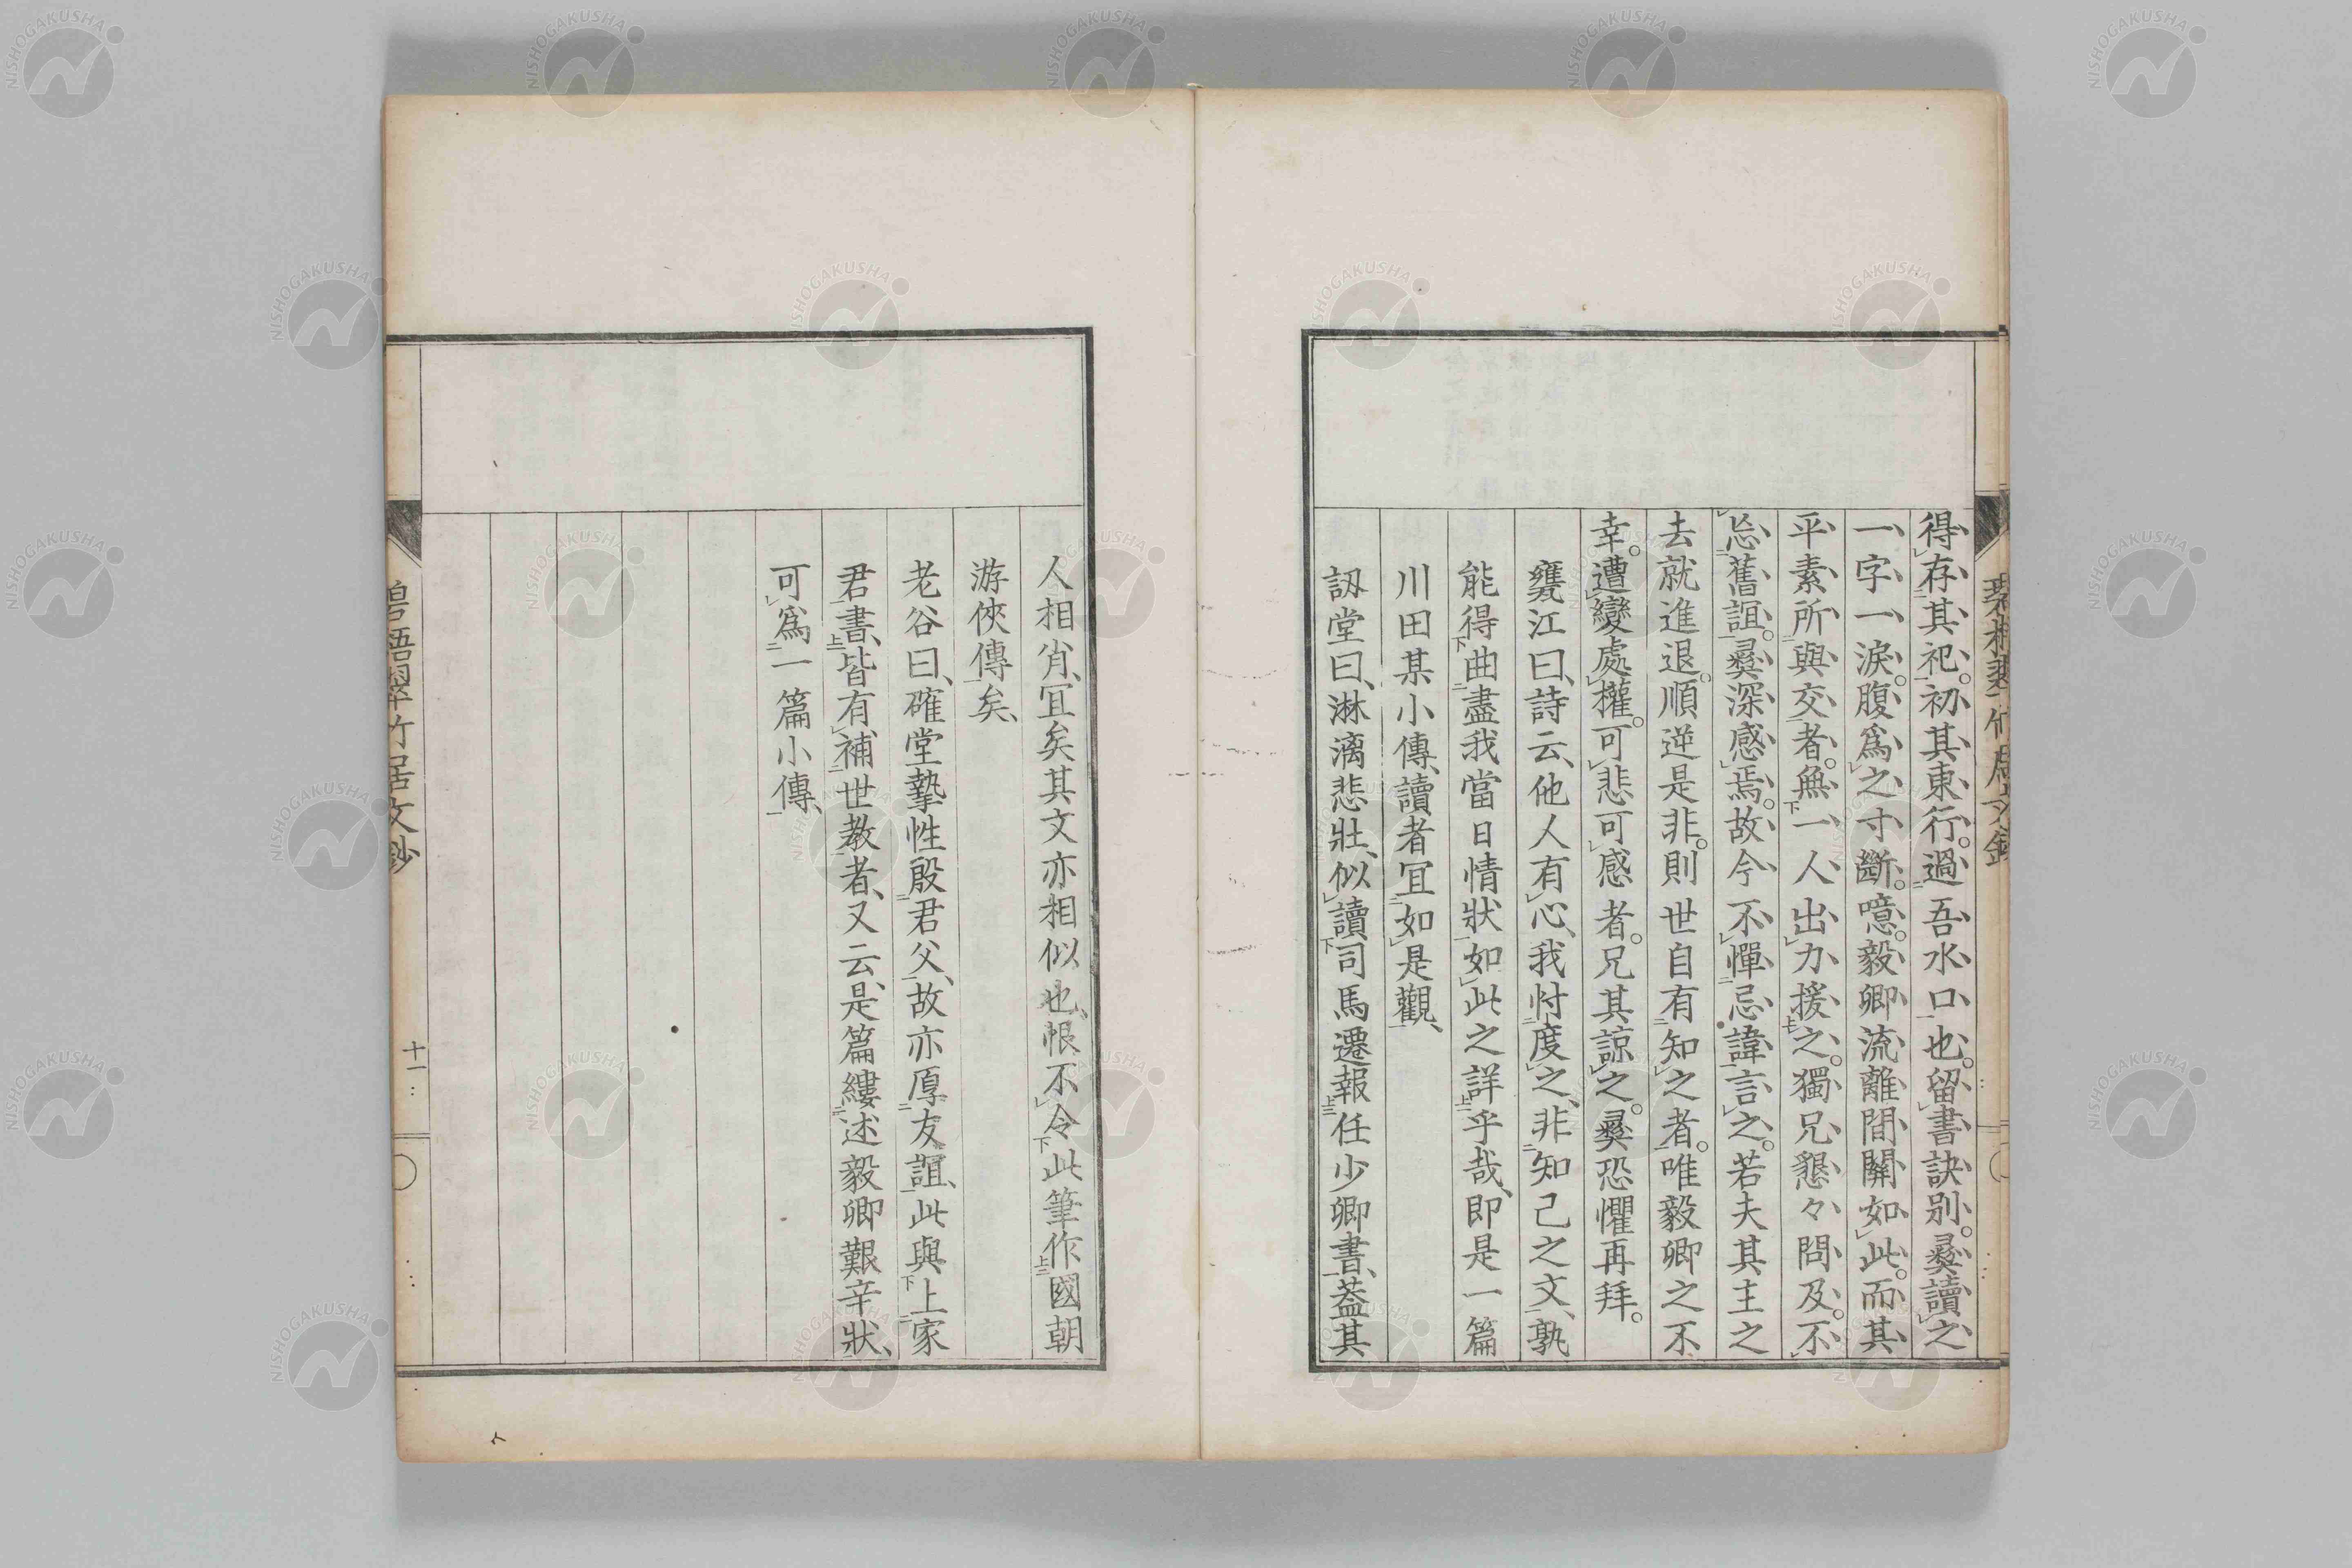 得存其祀。初其東行。過吾水口也。留書訣別。彜讀之
一字一淚。腹爲之寸斷。噫。毅卿流離間關如此。而其
平素所與交者。無一人出力援之。獨兄懇々問及。不
忘舊誼。彜深感焉。故今不憚忌諱言之。若夫其主之
去就進退。順逆是非。則世自有知之者。唯毅卿之不
幸。遭變處攉。可悲可感者。兄其諒之。彜恐懼再拜。
甕江曰、詩云、他人有心、我忖度之、非知己之文、孰
能得曲盡我當日情狀如此之詳乎哉、即是一篇
川田某小傳、讀者冝如是觀、
訒堂曰、淋漓悲壯、似讀司馬遷報任少卿書、葢其
人相肖、冝矣其文亦相似也、恨不令此筆作國朝
游俠傳矣、
老谷曰、確堂摯性殷君父、故亦厚友誼、此與上家
君書、皆有補世教者、又云、是篇縷述毅卿艱辛狀、
可爲一篇小傳、
碧梧翠竹居文鈔
十一